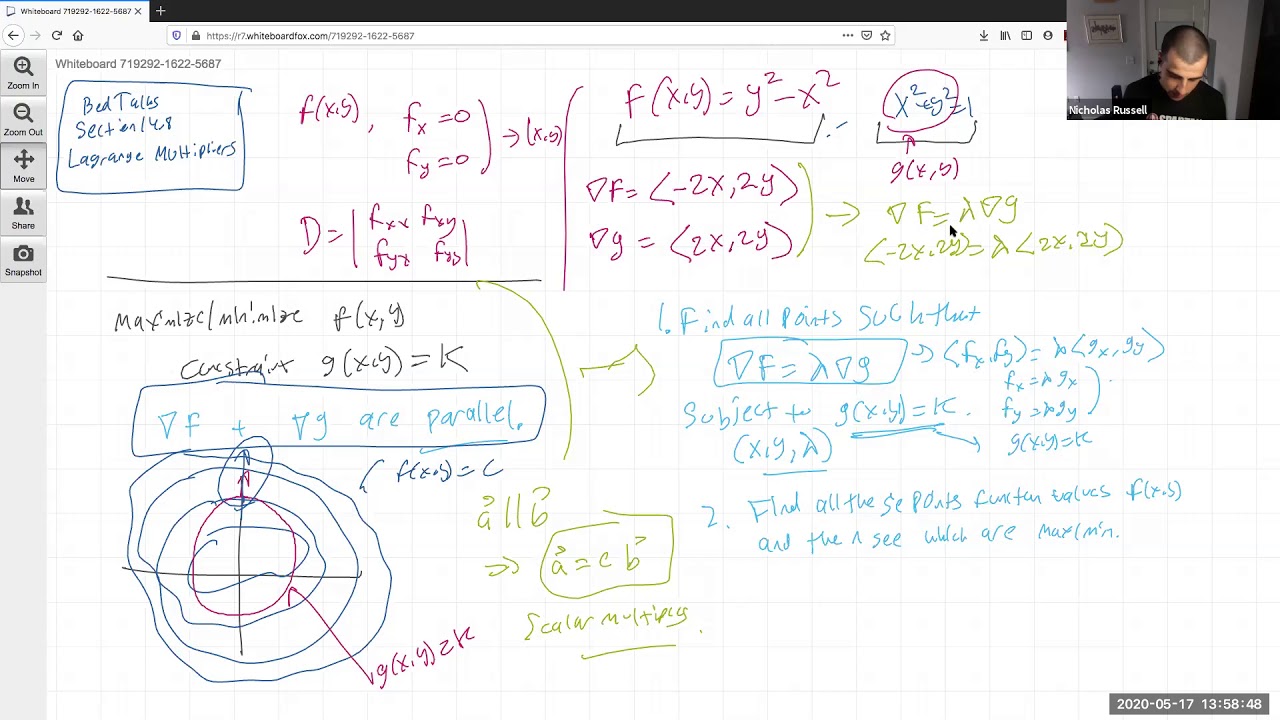 Whiteboard 719292-1622-5687
https://r7.whiteboardfox.com/719292-1622-5687
Nicholas Russell
Zoom In
Zoom Out
Move
Share
Snapshot
Whiteboard 719292-1622-5687
Section 14.8
Lagrange Multipliers
f(x,y), fx=0
fy=0
→ (x,y)
D= |fxx fxy
fyx fyy|
F(x,y) = y²-x²
x²+y²=1
g(x,y)
∇F= ⟨-2x,2y⟩
∇g = ⟨2x,2y⟩
→ ∇F=λ∇g
⟨-2x,2y⟩=λ⟨2x,2y⟩
Maximize/minimize f(x,y)
constraint g(x,y) = K
∇F + ∇g are parallel.
f(x,y)=c
g(x,y)=K
a⃗ || b⃗
⇒ a⃗ = c b⃗
Scalar multiples.
1. Find all points such that
∇F = λ∇g → ⟨fx,fy⟩=λ⟨gx,gy⟩
fx=λgx
fy=λgy
g(x,y)=K
Subject to g(x,y)=K.
(x,y,λ)
2. Find all these points functon values f(x,y)
and then see which are max/min.
2020-05-17 13:58:48